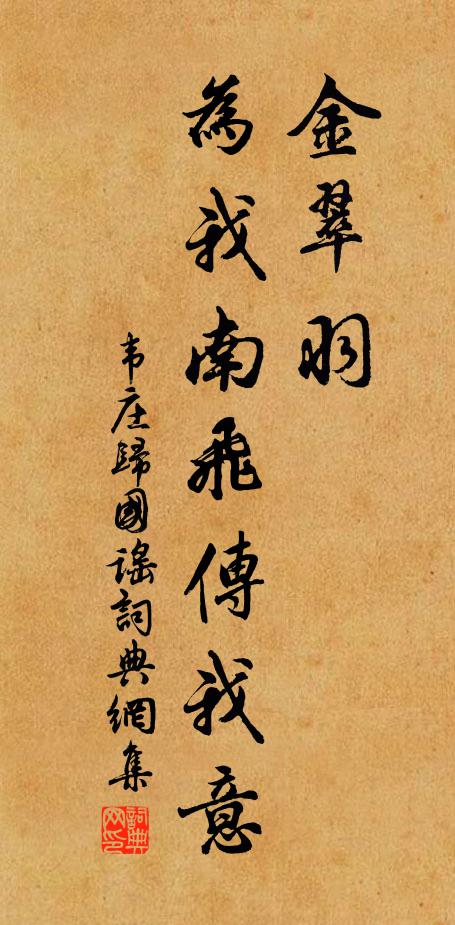 金翠羽
為我南飛傳我意
韦庄歸國謠詞典網集
詞典网印